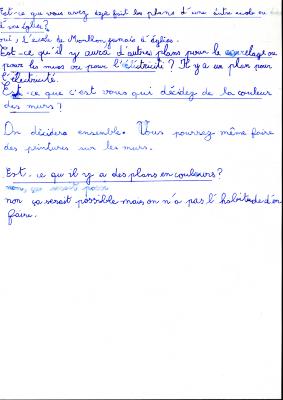 Est-ce que vous avez déjà fait les plans d'une autre école ou
d'une église?
oui, l'école de Montlon jamais d'église.
Est-ce qu'il y aura d'autres plans pour le carrelage ou
pour les murs ou pour l'électricité? Il y a un plan pour
l'électricité.
Est-ce que c'est vous qui décidez de la couleur
des murs?
On décidera ensemble. Vous pourrez même faire
des peintures sur les murs.
Est-ce qu'il y a des plans en couleurs?
non, ça serait possi
non ça serait possible mais on n'a pas l'habitude d'en
faire.